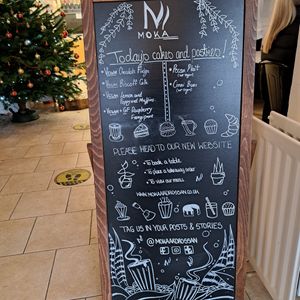 MOKA
Today's cakes and pastries!
Vegan Chocolate Fudge
Vegan Biscoff Cake
Vegan Lemon and
Poppyseed Muffins
Vegan + GF Raspberry
Frangipane
Pecan Plait
(not vegan)
(not vegan)
PLEASE HEAD TO OUR NEW WEBSITE
- To book a table
- To place a takeaway order
- To view our menu
WWW.MOKAARDROSSAN.CO.UK
TAG US IN YOUR POSTS & STORIES
@MOKAARDROSSAN